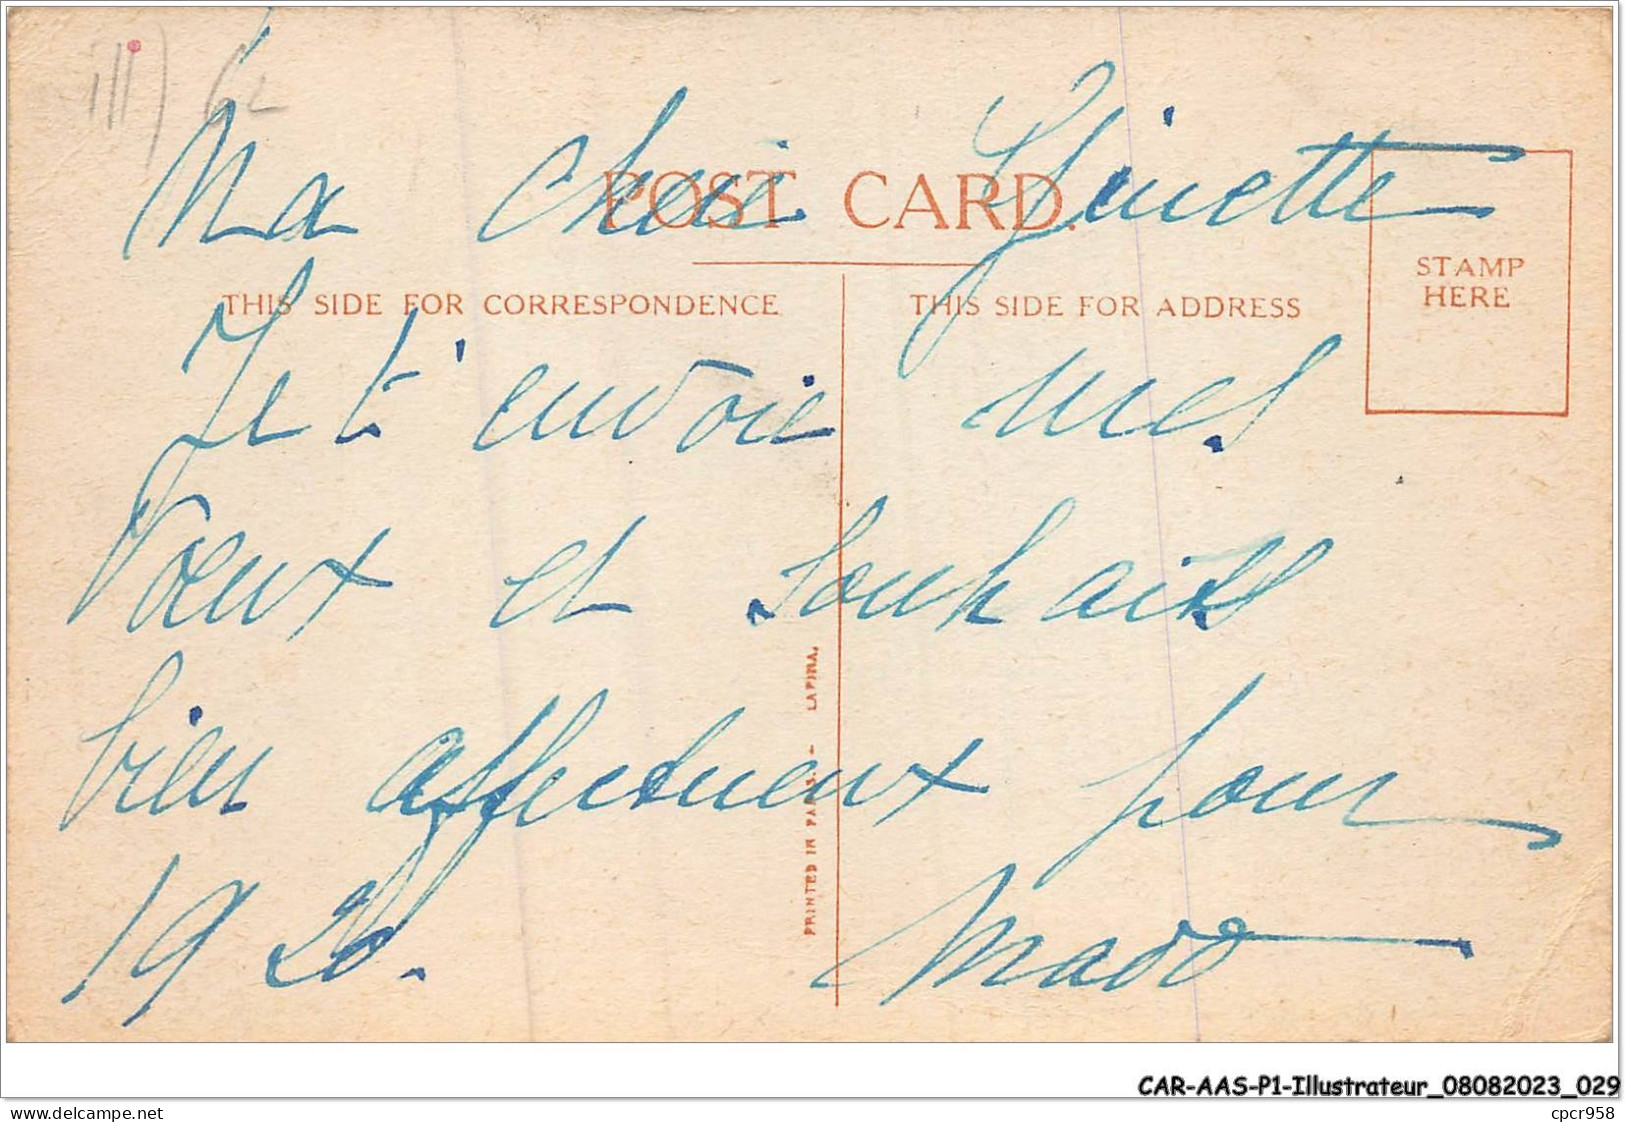 III) 62
Ma chère Ginette
POST CARD.
THIS SIDE FOR CORRESPONDENCE
THIS SIDE FOR ADDRESS
STAMP
HERE
Je t'envoie mes
vœux et souhaits
bien affectueux pour
1920.
Mado
PRINTED IN PARIS. - LAPINA.
CAR-AAS-P1-Illustrateur_08082023_029
delcampe.net
cpcr958